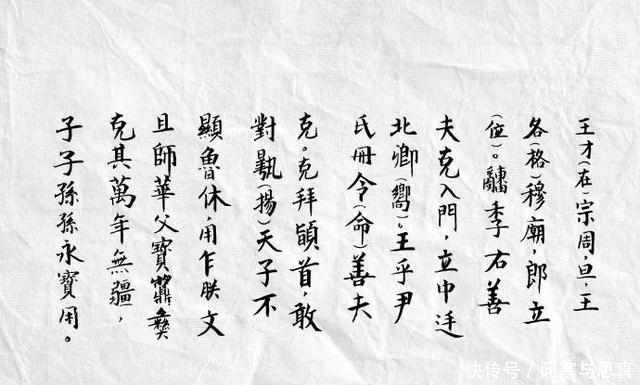 王才(在)宗周,旦,王
各(格)穆廟,即立
(位)。季右善
夫克入門,立中廷
北卿(嚮)。王乎尹
氏冊令(命)善夫
克。克拜䭫首,敢
對(揚)天子不
顯魯休,用乍朕文
且師華父寶䵼彝
克其萬年無疆,
子子孫孫永寶用。
快传号 /